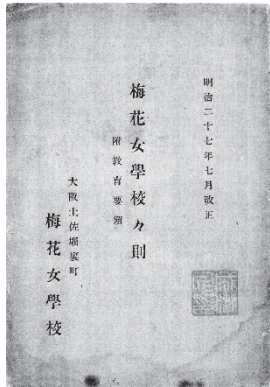 明治二十七年七月改正
梅花女學校々則
附教育要領
大阪土佐堀裏町
梅花女學校